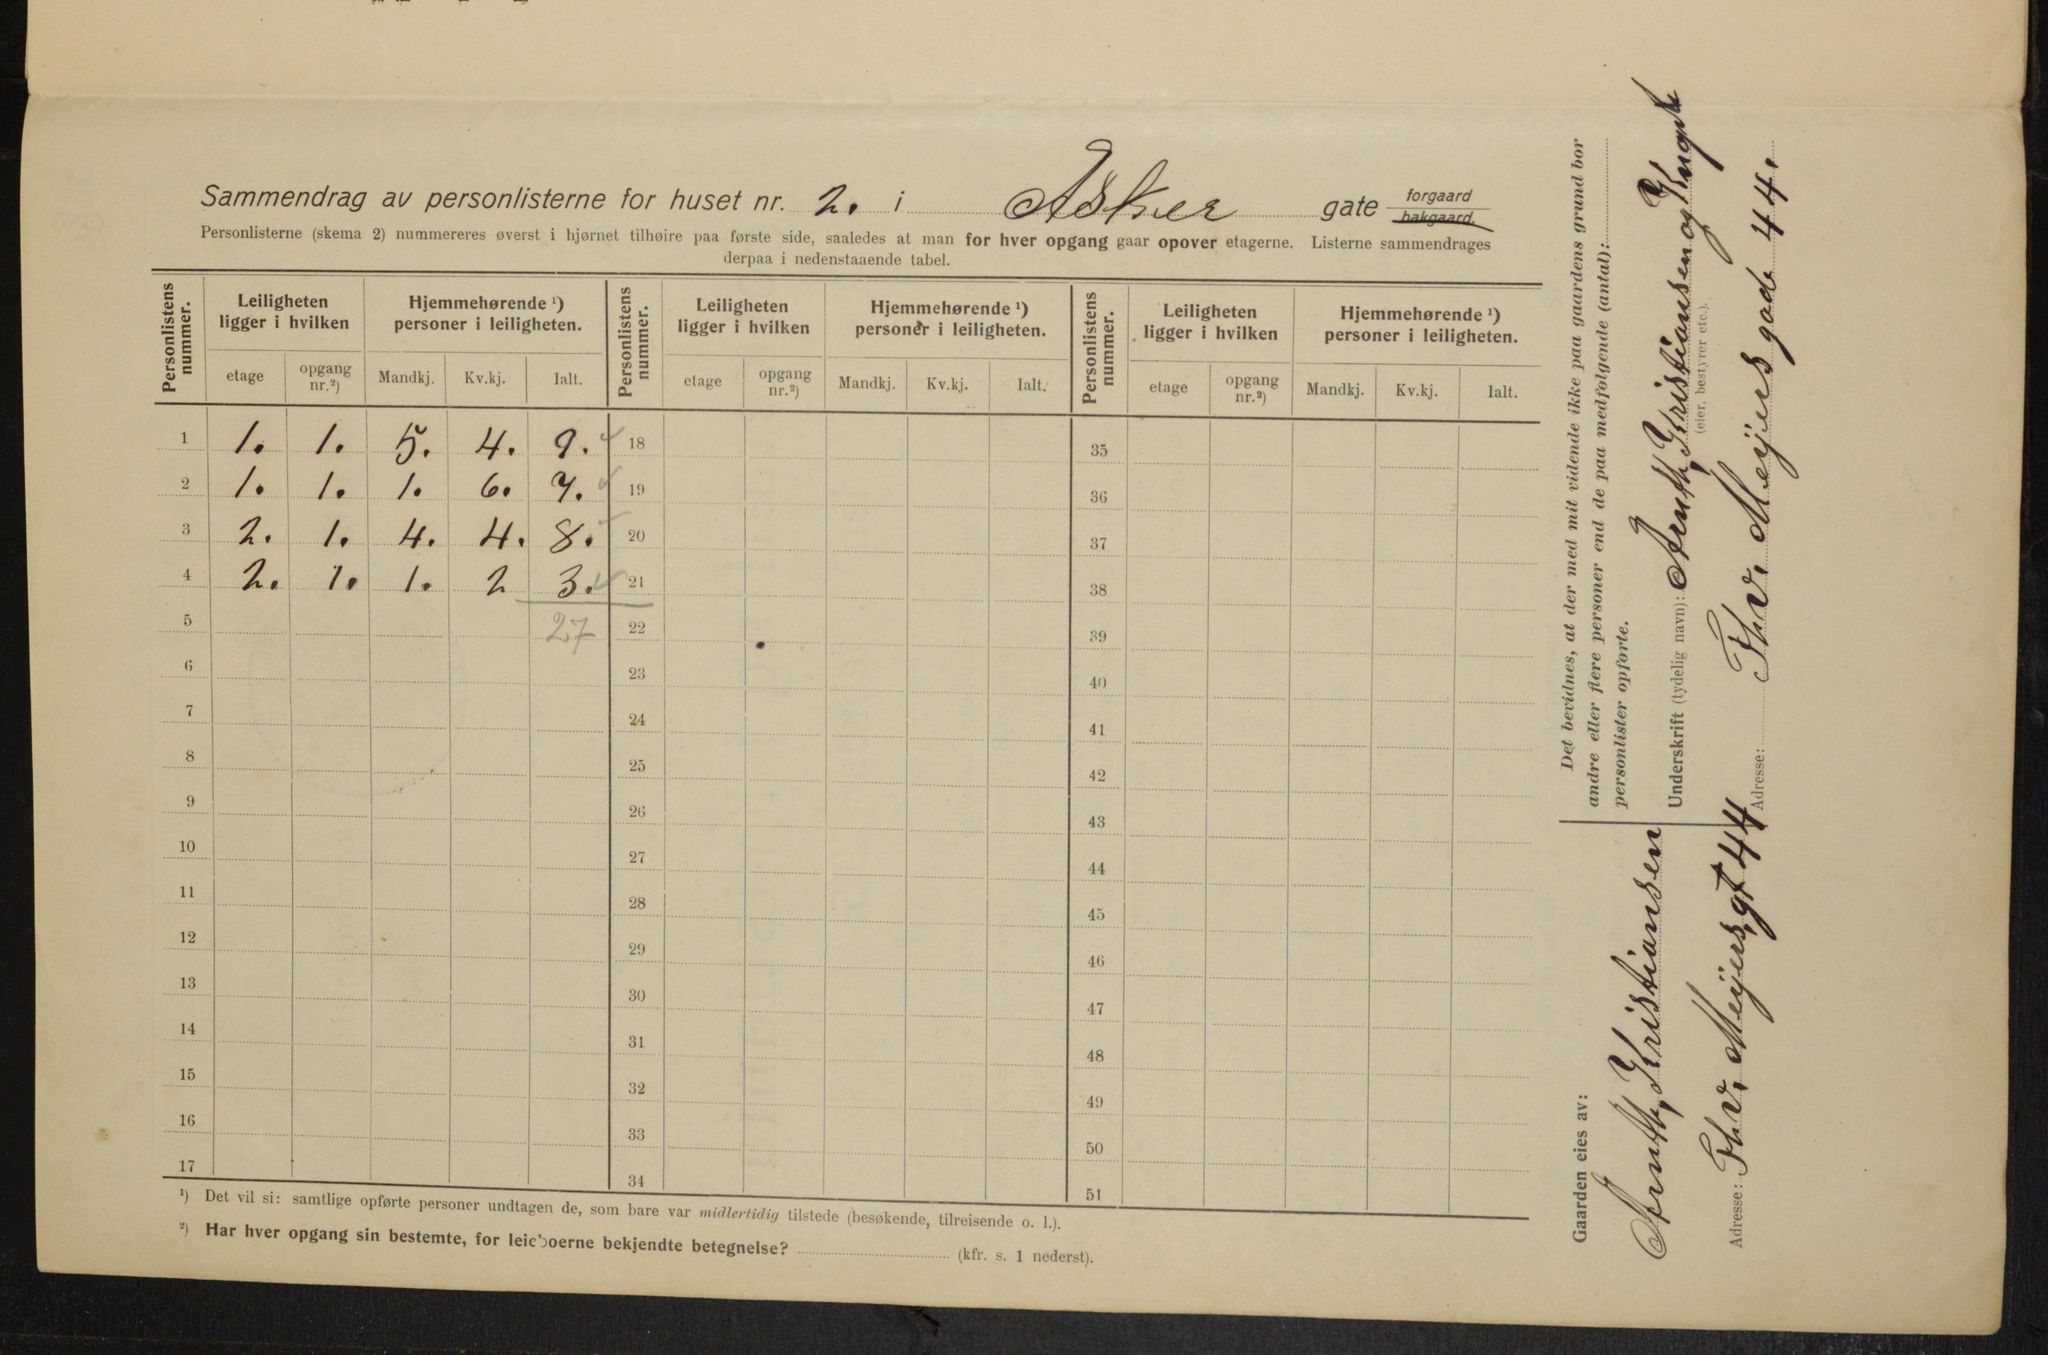 Sammendrag av personlisterne for huset nr. 2. i Asker gate forgaard
bakgaard.
Personlisterne (skema 2) nummereres øverst i hjørnet tilhøire paa første side, saaledes at man for hver opgang gaar opover etagerne. Listerne sammendrages
derpaa i nedenstaaende tabel.
Personlistens nummer. Leiligheten ligger i hvilken Hjemmehørende ¹) personer i leiligheten. Personlistens nummer. Leiligheten ligger i hvilken Hjemmehørende ¹) personer i leiligheten. Personlistens nummer. Leiligheten ligger i hvilken Hjemmehørende ¹) personer i leiligheten.
etage opgang nr.²) Mandkj. Kv.kj. Ialt. etage opgang nr.²) Mandkj. Kv.kj. Ialt. etage opgang nr.²) Mandkj. Kv.kj. Ialt.
1 1. 1. 5. 4. 9. 18 35
2 1. 1. 1. 6. 7. 19 36
3 2. 1. 4. 4. 8. 20 37
4 2. 1. 1. 2 3. 21 38
5 27 22 39
6 23 40
7 24 41
8 25 42
9 26 43
10 27 44
11 28 45
12 29 46
13 30 47
14 31 48
15 32 49
16 33 50
17 34 51
¹) Det vil si: samtlige opførte personer undtagen de, som bare var midlertidig tilstede (besøkende, tilreisende o. l.).
²) Har hver opgang sin bestemte, for leieboerne bekjendte betegnelse? (kfr. s. 1 nederst).
Det bevidnes, at der med mit vidende ikke paa gaardens grund bor
andre eller flere personer end de paa medfølgende (antal):
personlister opførte.
Underskrift (tydelig navn): Arnth, Kristiansen og
(eier, bestyrer etc.).
Adresse: Th. v. Meijers gade 44.
Gaarden eies av:
Arnth, Kristiansen
Adresse: Th. v. Meijers, gt 44